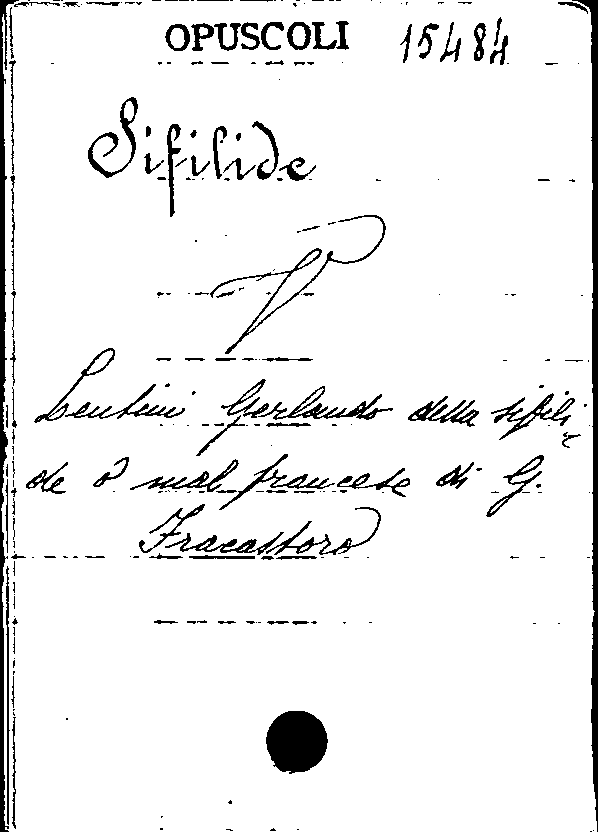 OPUSCOLI 15484
Sifilide
V
Lentini Gerlando della sifili-
de o mal francese di G.
Fracastoro